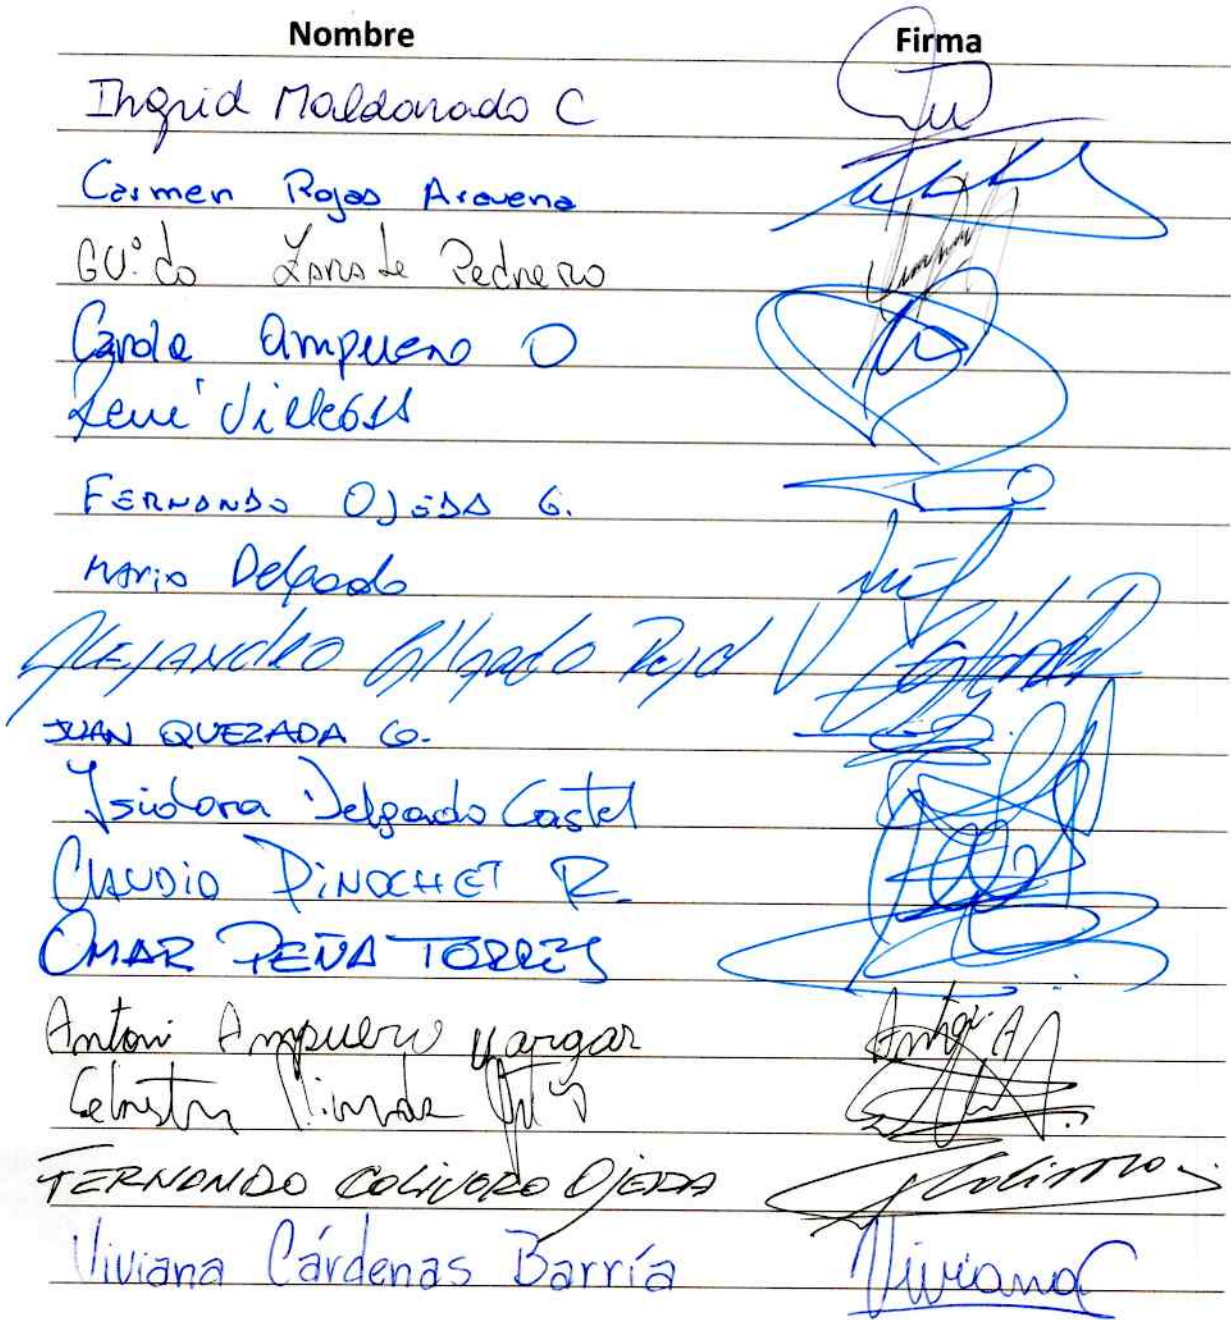 Nombre Firma
Ingrid Maldonado C
Carmen Rojas Aravena
Guido Zarate Pedrero
Carola Ampuero O
René Villegas
FERNANDO OJEDA G.
Mario Delgado
ALEJANDRO Rojel
JUAN QUEZADA G.
Isidora Delgado Castel
CLAUDIO PINOCHET R.
OMAR PEÑA TORRES
Antoni Ampuero Vargas Antoni A
FERNANDO COLIVORO OJEDA
Viviana Cárdenas Barría Viviana C